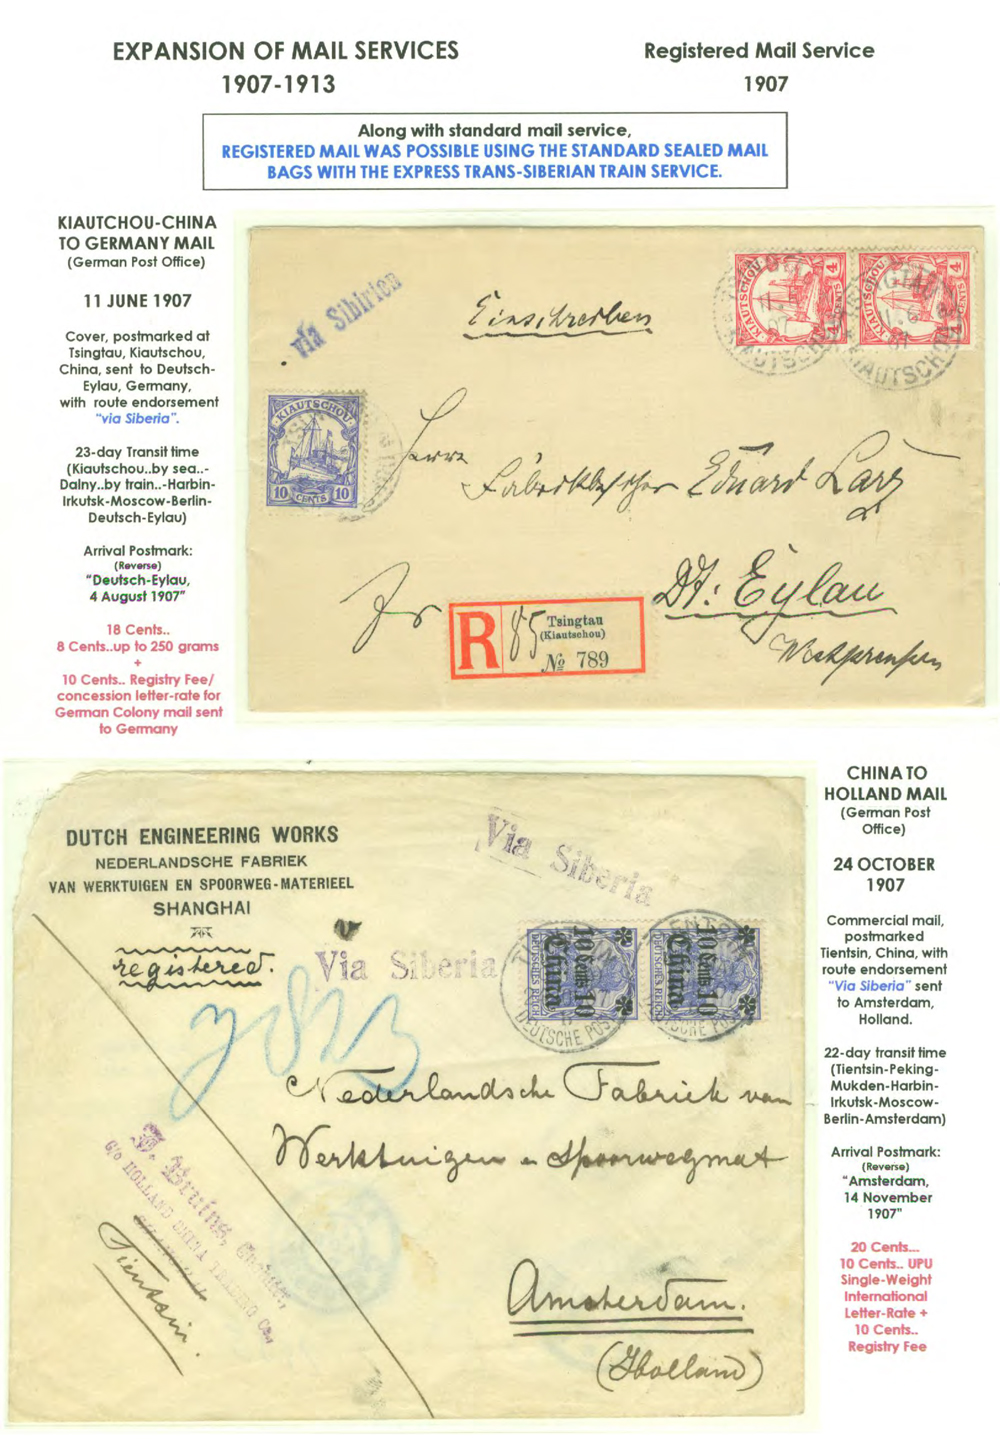 EXPANSION OF MAIL SERVICES
1907-1913
Registered Mail Service
1907
Along with standard mail service,
REGISTERED MAIL WAS POSSIBLE USING THE STANDARD SEALED MAIL
BAGS WITH THE EXPRESS TRANS-SIBERIAN TRAIN SERVICE.
KIAUTCHOU-CHINA
TO GERMANY MAIL
(German Post Office)
11 JUNE 1907
Cover, postmarked at
Tsingtau, Kiautschou,
China, sent to Deutsch-
Eylau, Germany,
with route endorsement
"via Siberia".
23-day Transit time
(Kiautschou..by sea..-
Dalny..by train..-Harbin-
Irkutsk-Moscow-Berlin-
Deutsch-Eylau)
Arrival Postmark:
(Reverse)
"Deutsch-Eylau,
4 August 1907"
18 Cents..
8 Cents..up to 250 grams
+
10 Cents.. Registry Fee/
concession letter-rate for
German Colony mail sent
to Germany
via Sibirien
Einschreiben
KIAUTSCHOU
4 CENTS 4
KIAUTSCHOU
4 CENTS 4
KIAUTSCHOU
10 CENTS 10
Herrn
Eduard
Dt: Eylau
Westpreussen
R
85
Tsingtau
(Kiautschou)
№ 789
DUTCH ENGINEERING WORKS
NEDERLANDSCHE FABRIEK
VAN WERKTUIGEN EN SPOORWEG-MATERIEEL
SHANGHAI
registered.
Via Siberia
Via Siberia
DEUTSCHES REICH
10 Cents 10
China
DEUTSCHES REICH
10 Cents 10
China
TIENTSIN
DEUTSCHE POST
Nederlandsche Fabriek van
Werktuigen en Spoorwegmat
Amsterdam.
(Holland)
J. Bruins,
C/o HOLLAND CHINA TRADING Co.,
Tientsin.
CHINA TO
HOLLAND MAIL
(German Post
Office)
24 OCTOBER
1907
Commercial mail,
postmarked
Tientsin, China, with
route endorsement
"Via Siberia" sent
to Amsterdam,
Holland.
22-day transit time
(Tientsin-Peking-
Mukden-Harbin-
Irkutsk-Moscow-
Berlin-Amsterdam)
Arrival Postmark:
(Reverse)
"Amsterdam,
14 November
1907"
20 Cents...
10 Cents.. UPU
Single-Weight
International
Letter-Rate +
10 Cents..
Registry Fee